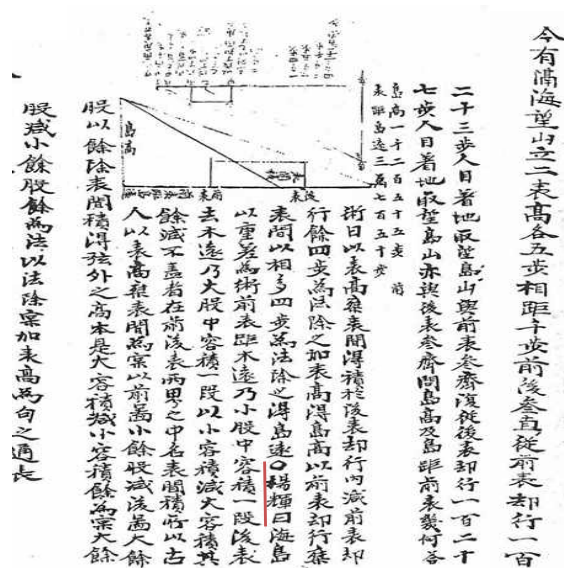 今有隔海望山立二表高各五步相距千步前後叅直從前表却行一百
二十三步人目著地取望島山與前表叅齊復從後表却行一百二十
七步人目著地取望島山亦與後表叅齊問島高及島距前表幾何答
島高一千二百五十五步 前
表距島遠三萬七百五十步
術曰以表高乘表間得積於後表却行內減前表却
行餘四步為法除之加表高得島高以前表却行乘
表間以相多四步為法除之得島遠〇楊輝曰海島
以重差為術前表距木遠乃小股中容積一段後表
去木遠乃大股中容積一段以小容積減大容積其
餘減不盡者在前後表兩界之中名表間積所以古
人以表高乘表間為實以前為小餘股減後為大餘
股以餘除表間積得弦外之高本是大容積減小容積餘為實大餘
股減小餘股餘為法以法除實加表高為句之通長
後表
前表
島高